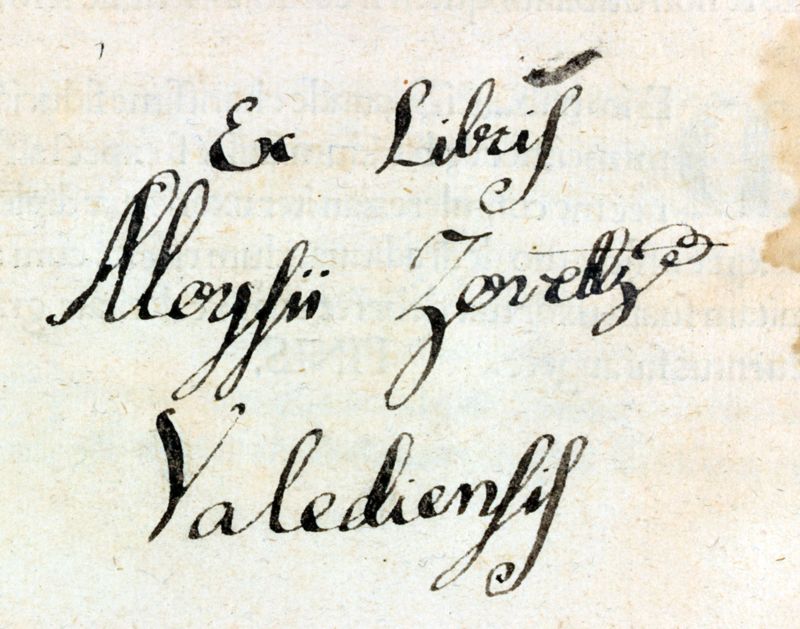 Ex Libris
Aloysii Zovettz
Valediensis
FINIS.